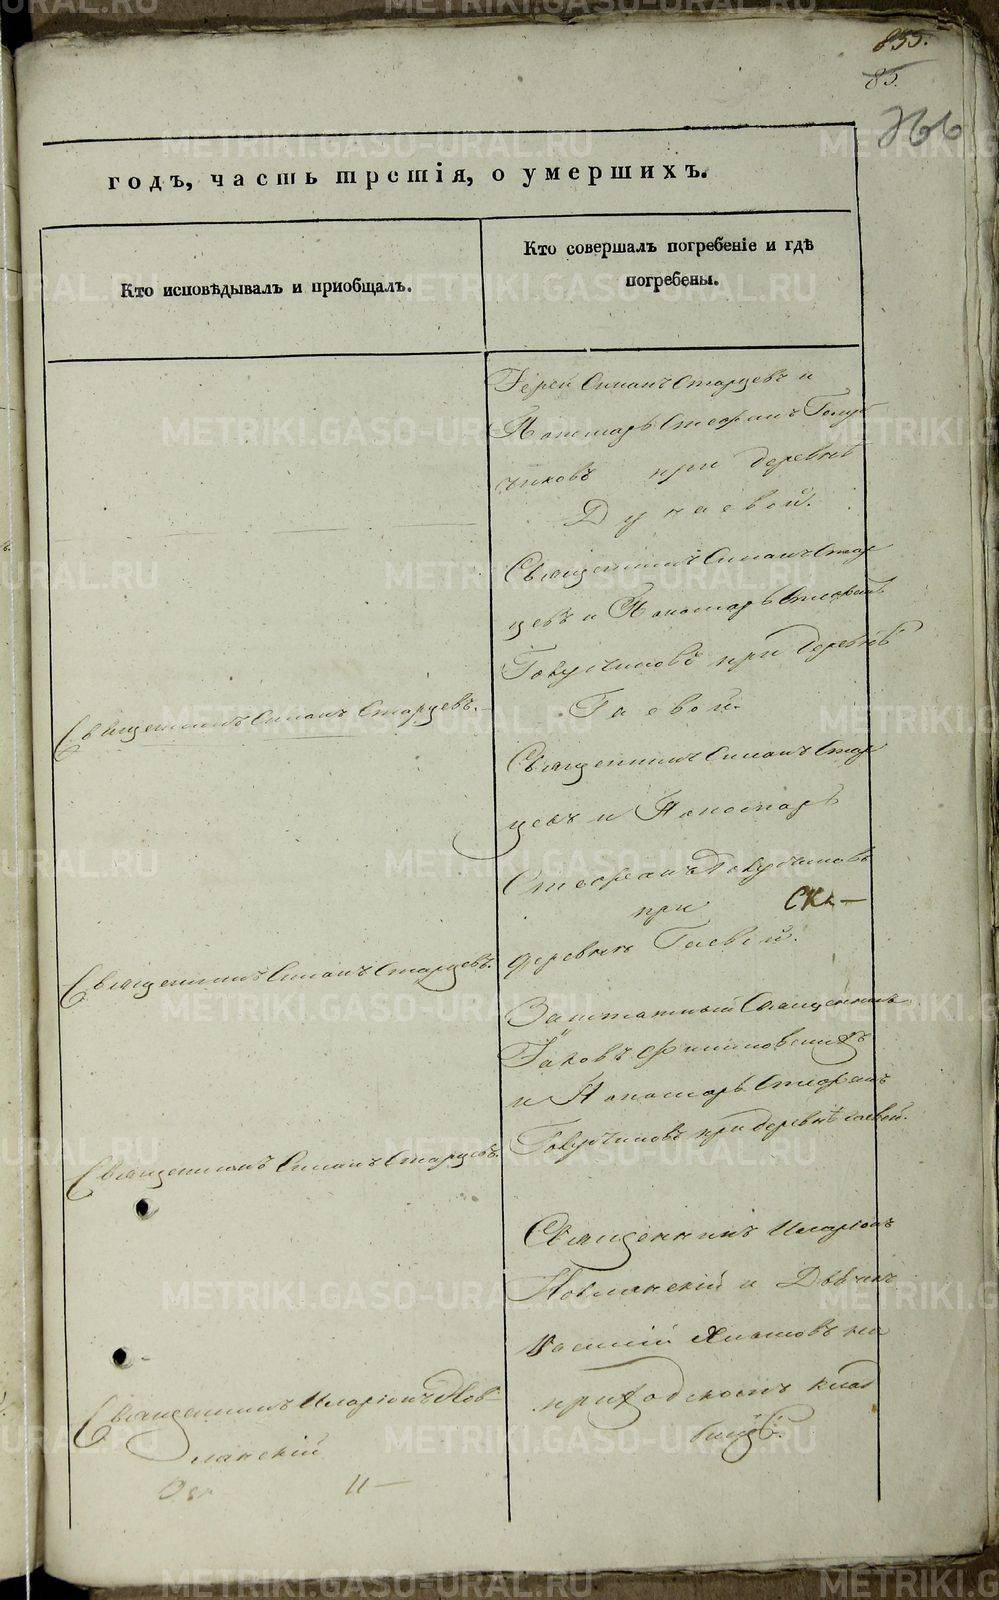 855.
85.
266
годъ, часть третія, о умершихъ.
Кто исповѣдывалъ и пріобщалъ.
Кто совершалъ погребеніе и гдѣ
погребены.
Іерей Симанъ Старцевъ и
Пономарь Стефанъ Голуб
чиковъ при деревнѣ
Дунаевой.
Священникъ Симанъ Стар
цевъ и Пономарь Стефанъ
Голубчиковъ при деревнѣ
Гаевой.
Священникъ Симанъ Старцевъ.
Священникъ Симанъ Стар
цевъ и Пономарь
Стефанъ Голубчиковъ
при
деревнѣ Гаевой.
Священникъ Симанъ Старцевъ.
Заштатный Священникъ
Іаковъ
и Пономарь Стефанъ
Голубчиковъ при деревнѣ Гаевой.
Священникъ Симанъ Старцевъ.
Священникъ Иларіонъ
и Дьячекъ
Василій на
приходскомъ клад
бищѣ.
Священникъ Иларіонъ
METRIKI.GASO-URAL.RU